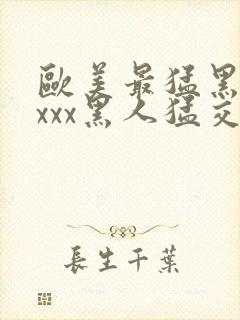 歐美最猛黑
xxx黑人猛交
長生千葉